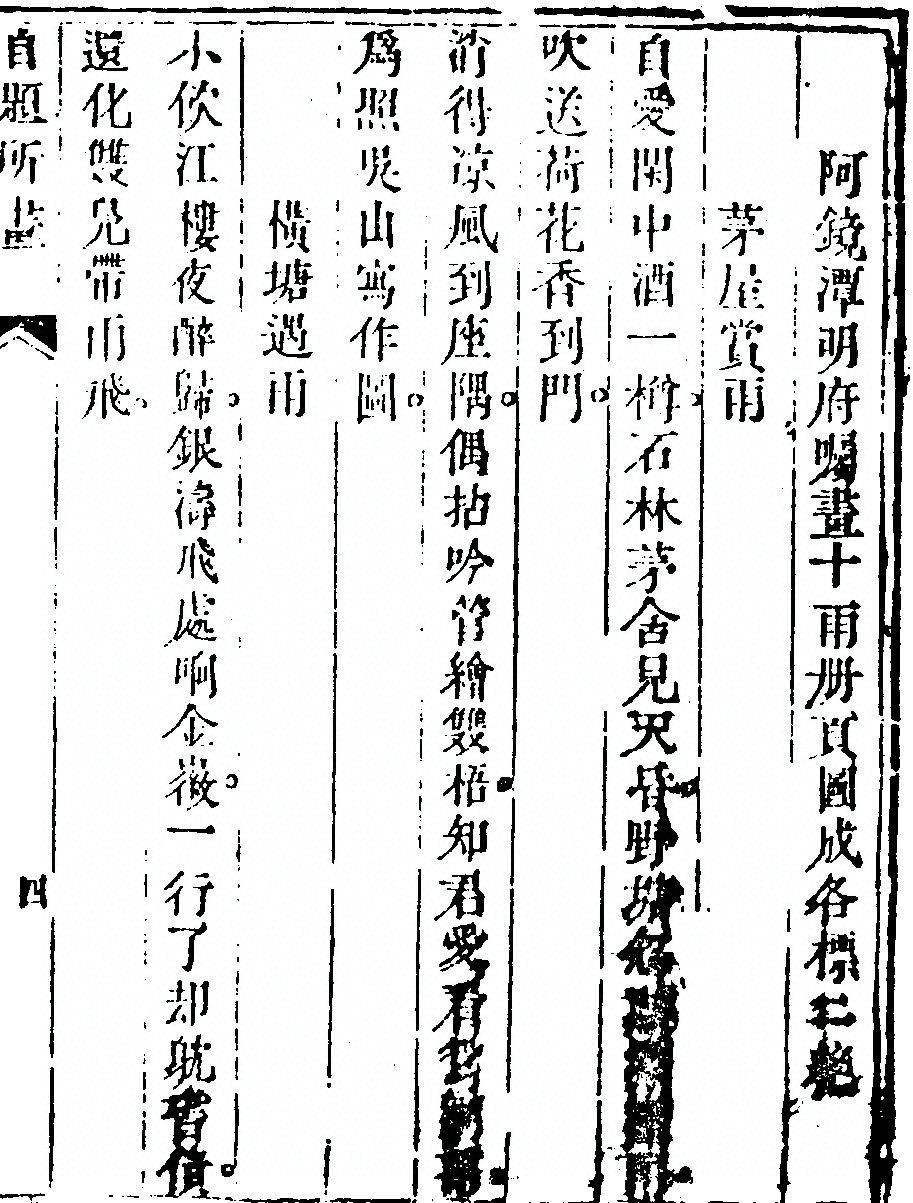 阿鏡潭明府囑畫十雨册頁圖成各標二絶
茅屋賞雨
自愛閑中酒一樽石林茅舍見天昏野塘
吹送荷花香到門
消得凉風到座隅偶拈吟管繪雙梧知君愛看
爲照吴山寫作圖
橫塘遇雨
小飲江樓夜醉歸銀濤飛處响金徽一行了却耽
還化雙鳬帶雨飛
自題所畫
四